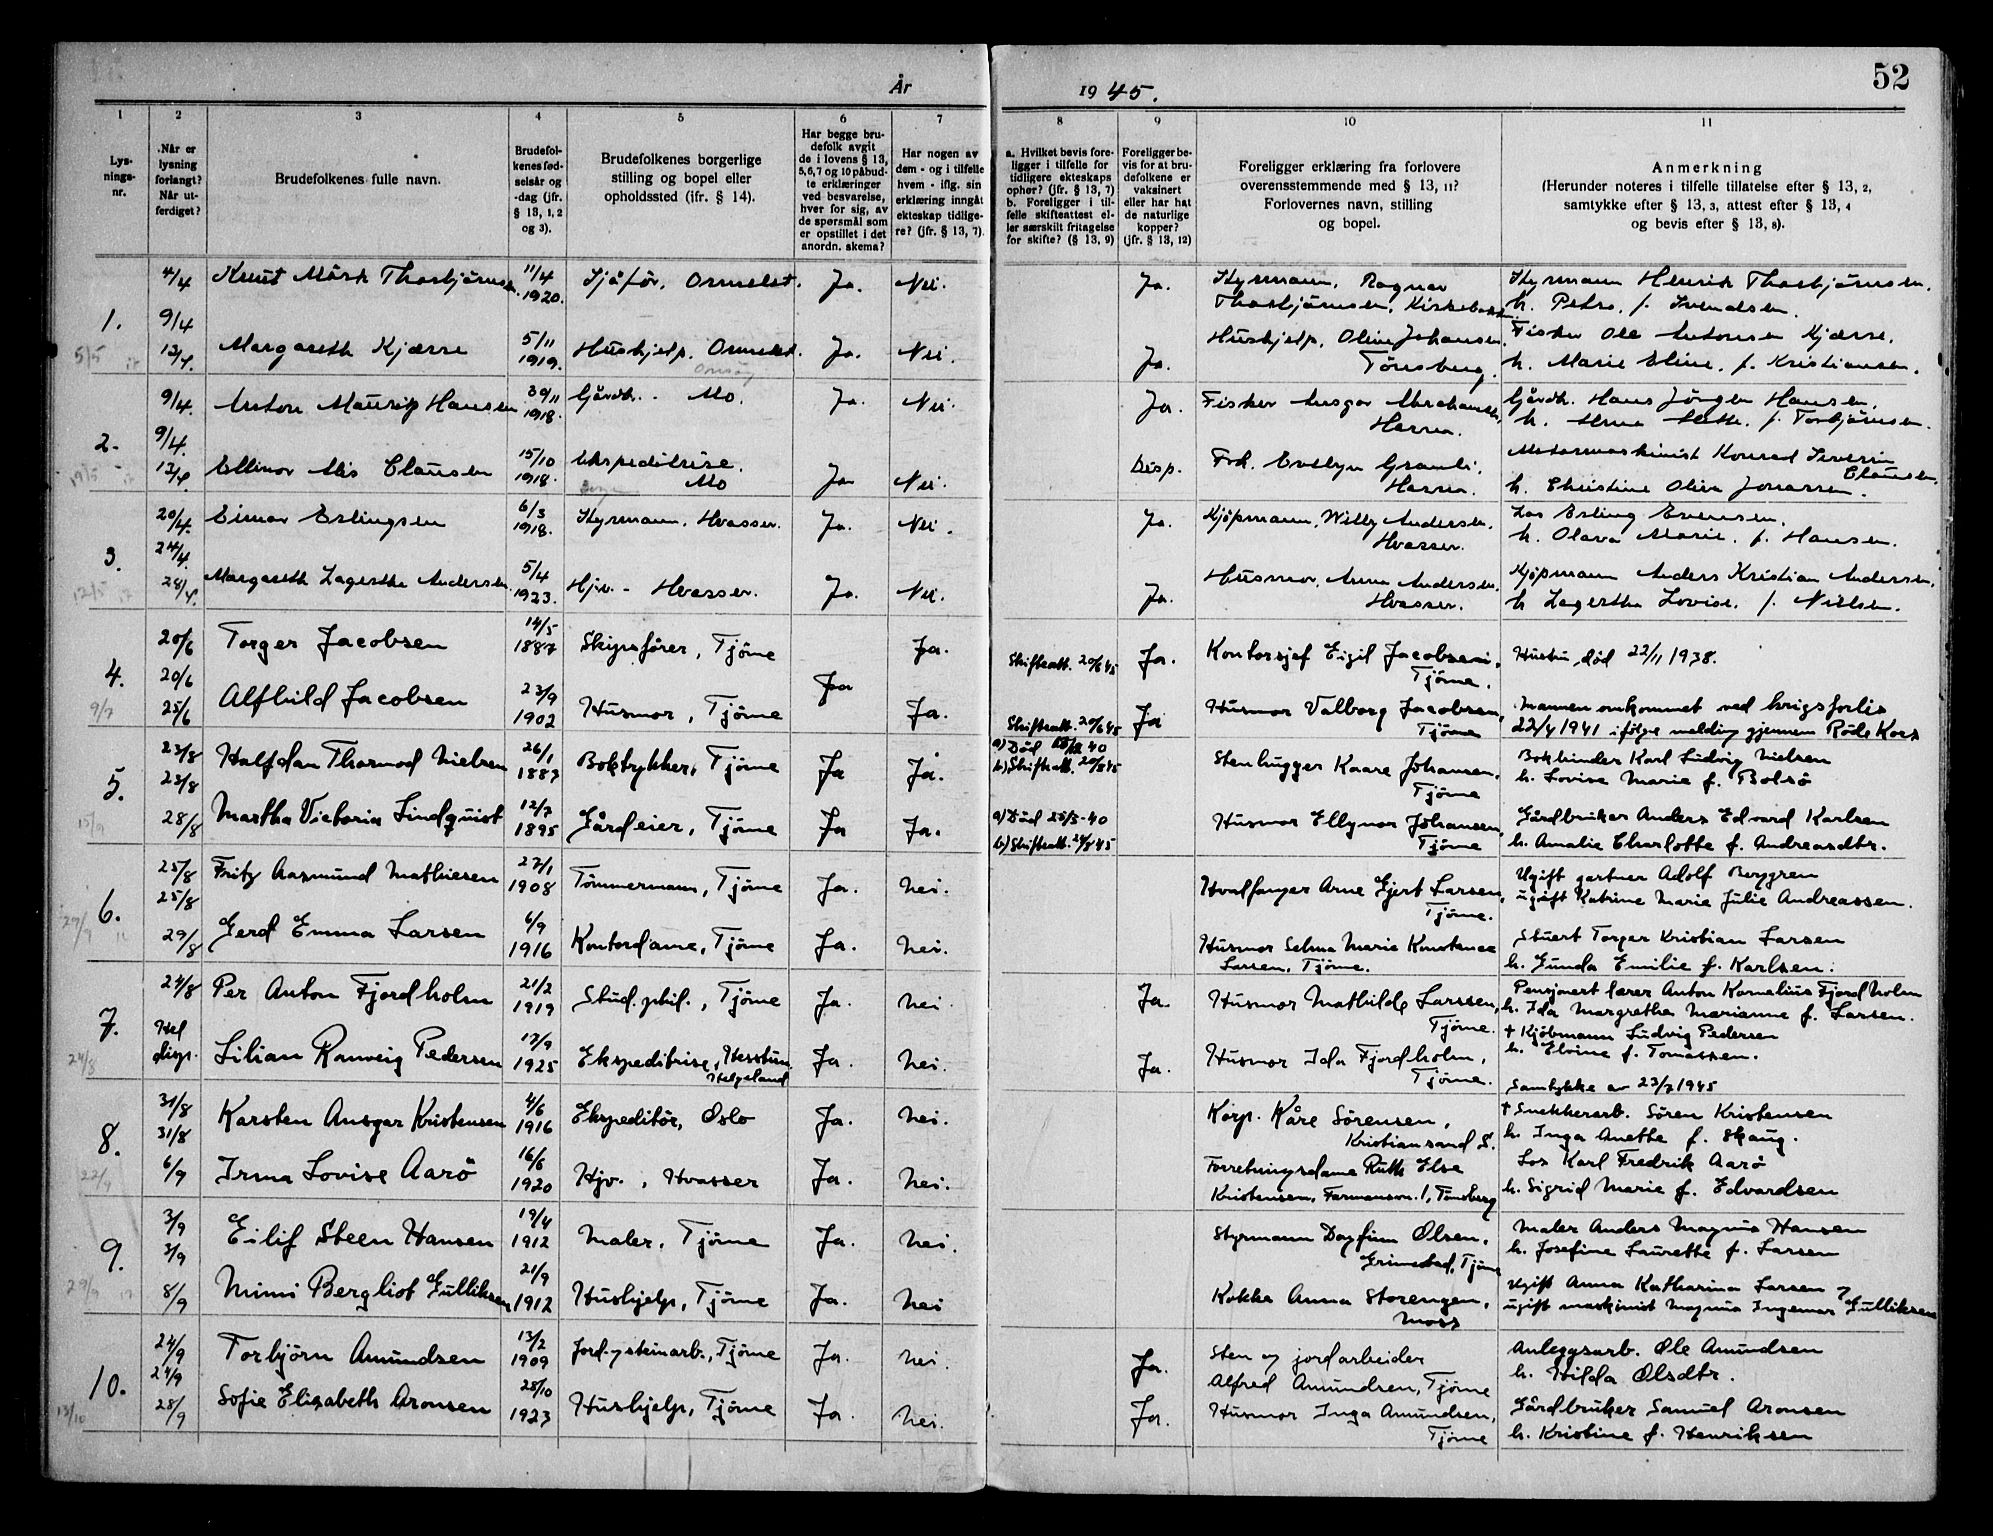 52
År 1945.
1 2 3 4 5 6 7 8 9 10 11
Lys-
nings-
nr.
Når er
lysning
forlangt?
Når ut-
ferdiget?
Brudefolkenes fulle navn.
Brudefol-
kenes fød-
selsår og
-dag (jfr.
§ 13, 1, 2
og 3).
Brudefolkenes borgerlige
stilling og bopel eller
opholdssted (ifr. § 14).
Har begge bru-
defolk avgit
de i lovens § 13,
5, 6, 7 og 10 påbud-
te erklæringer
ved besvarelse,
hver for sig, av
de spørsmål som
er opstillet i det
anordn. skema?
Har nogen av
dem - og i tilfelle
hvem - iflg. sin
erklæring inngåt
ekteskap tidlige-
re? (jfr. § 13, 7).
a. Hvilket bevis fore-
ligger i tilfelle for
tidligere ekteskaps
ophør? (jfr. § 13, 7)
b. Foreligger i til-
felle skifteattest el-
ler særskilt fritagelse
for skifte? (§ 13, 9)
Foreligger be-
vis for at bru-
defolkene er
vaksinert
eller har hat
de naturlige
kopper?
(jfr. § 13, 12)
Foreligger erklæring fra forlovere
overensstemmende med § 13, 11?
Forlovernes navn, stilling
og bopel.
Anmerkning
(Herunder noteres i tilfelle tillatelse efter § 13, 2,
samtykke efter § 13, 3, attest efter § 13, 4
og bevis efter § 13, 8).
1.
4/4 Knut Mörk Thorbjörnsen. 11/4 1920. Sjåför, Ormelet. Ja. Nei. Ja. Styrmann, Ragnar
Thorbjörnsen, Kirkebakken.
Styrmann Henrik Thorbjörnsen.
h. Petra, f. Svendsen.
9/4
12/4. Margareth Kjærre 5/11 1919. Hushjelp. Ormelet. Ja. Nei. Ja. Hushjelp, Oline Johansen.
Tönsberg.
Fisker Ole Antonsen Kjærre.
h. Marie Eline, f. Kristiansen.
5/5
2.
9/4. Anton Mauritz Hansen 30/11 1918. Gårdbr. Mo. Ja. Nei. Ja. Fisker Ansgar Abrahamsen,
Hassen.
Gårdbr. Hans Jörgen Hansen,
h. Anna f. Torbjörnsen.
9/4.
12/4 Ellinor Alis Clausen 15/10 1918. Ekspeditrise.
Mo Ja Nei. Disp. Frk. Evelyn
Motormaskinist Konrad Severin
Clausen,
h. Christine Oliva Jonassen.
19/5
3.
20/4. Einar Erlingsen 6/3 1918. Styrmann, Hvasser. Ja. Nei. Ja. Kjøpmann, Willy Andersen.
Hvasser.
Los Erling Evensen.
h. Olava Marie, f. Hansen.
24/4.
28/4. Margareth Lagertha Andersen. 5/4 1923. Hjv. - Hvasser. Ja. Nei. Ja. Husmor, Anna Andersen.
Hvasser.
Kjøpmann Anders Kristian Andersen.
h Lagertha Lovise, f. Nielsen.
12/5
4.
20/6 Torger Jacobsen 14/5 1887 Skipsfører, Tjöme Ja. Skifteatt. 20/6 45 Ja. Kontorsjef Eigil Jacobsen,
Tjöme.
Hustru død 22/11 1938.
20/6 Ja
25/6 Alfhild Jacobsen 23/9 1902 Husmor, Tjöme Ja. Skifteatt. 20/6 45 Ja Husmor Valborg Jacobsen,
Tjöme
Mannen omkommet ved krigsforlis
22/4 1941 ifølge melding gjennem Røde Kors
9/7
5.
23/8 Halfdan Thormod Nielsen 26/1 1887 Boktrykker, Tjöme Ja Ja. a) Död 40
b) Skifteatt. 20/8 45 Stenhugger Kaare Johansen,
Tjöme
Bokbinder Karl Ludvig Nielsen
h. Lovise Marie f. Bolsö
23/8
28/8 Martha Victoria Lindquist 12/7 1895 Gårdeier, Tjöme Ja Ja. a) Död 25/5-40
b) Skifteatt. 24/8 45 Husmor Ellynor Johansen,
Tjöme
Gårdbruker Anders Edvard Karlsen
h. Amalie Charlotte f. Andreasdtr.
15/9
6.
25/8 Fritz Aasmund Mathiesen 27/1 1908 Tömmermann, Tjöme Ja. Nei. Hvalfanger Arne Gjert Larsen,
Tjöme.
Ugift gartner Adolf Berggren
ugift Katrine Marie Julie Andreassen.
25/8
29/8 Gerd Emma Larsen 6/9 1916 Kontordame, Tjöme Ja. Nei. Husmor Selma Marie Konstance
Larsen, Tjöme.
Stuert Torger Kristian Larsen
h. Gunda Emilie f. Karlsen.
29/9
7.
24/8 Per Anton Fjordholm 21/2 1919 Stud. phil., Tjöme Ja. Nei. Ja. Husmor Mathilde Larssen,
Tjöme.
Pensjonert lærer Anton Kornelius Fjordholm
h. Ida Margrethe Marianne f. Larsen.
Hel
disp. Lilian Ranveig Pedersen 17/9 1925 Ekspeditrise, Hesstun,
Helgeland Ja. Nei. Ja. Husmor Ida Fjordholm,
Tjöme.
† Kjöbmann Ludvig Pedersen
h. Elvine f. Tomassen.
Samtykke av 23/7 1945
24/8
8.
31/8 Karsten Ansgar Kristensen 4/6 1916 Ekspeditör, Oslo Ja. Nei. Korp. Kåre Sörensen,
Kristiansand S.
† Snekkerarb. Sören Kristensen
h. Inga Anette f. Skaug.
31/8
6/9 Irma Lovise Aarö 16/6 1920 Hjv., Hvasser Ja. Nei. Forretningsdame Ruth Else
Kristensen, Farmannsv. 1, Tönsberg
Los Karl Fredrik Aarö
h. Sigrid Marie f. Edvardsen
22/9
9.
3/9 Eilif Steen Hansen 19/4 1912 Maler, Tjöme Ja. Nei. Styrmann Dagfinn Olsen,
Grimestad, Tjöme
Maler Anders Magnus Hansen
h. Josefine Laurette f. Larsen
3/9
8/9 Mimi Bergliot Gulliksen 21/9 1912 Hushjelp, Tjöme Ja. Nei Kokke Anna Storengen,
Moss
Ugift Anna Katharina Larsen
ugift maskinist Magnus Ingemar Gulliksen
29/9
10.
24/9 Torbjörn Amundsen 13/2 1909 Jord- og steinarb., Tjöme Ja. Nei. Ja. Sten og jordarbeider
Alfred Amundsen, Tjöme
Anleggsarb. Ole Amundsen
h. Hilda Olsdtr.
24/9
28/9 Sofie Elisabeth Aronsen 28/10 1923 Hushjelp, Tjöme Ja. Nei. Ja. Husmor Inga Amundsen,
Tjöme
Gårdbruker Samuel Aronsen
h. Kristine f. Henriksen
13/10